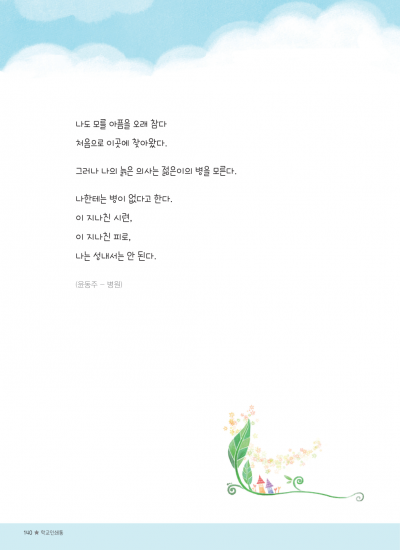 나도 모를 아픔을 오래 참다
처음으로 이곳에 찾아왔다.
그러나 나의 늙은 의사는 젊은이의 병을 모른다.
나한테는 병이 없다고 한다.
이 지나친 시련,
이 지나친 피로,
나는 성내서는 안 된다.
(윤동주 - 병원)
140 ★ 학교인생통